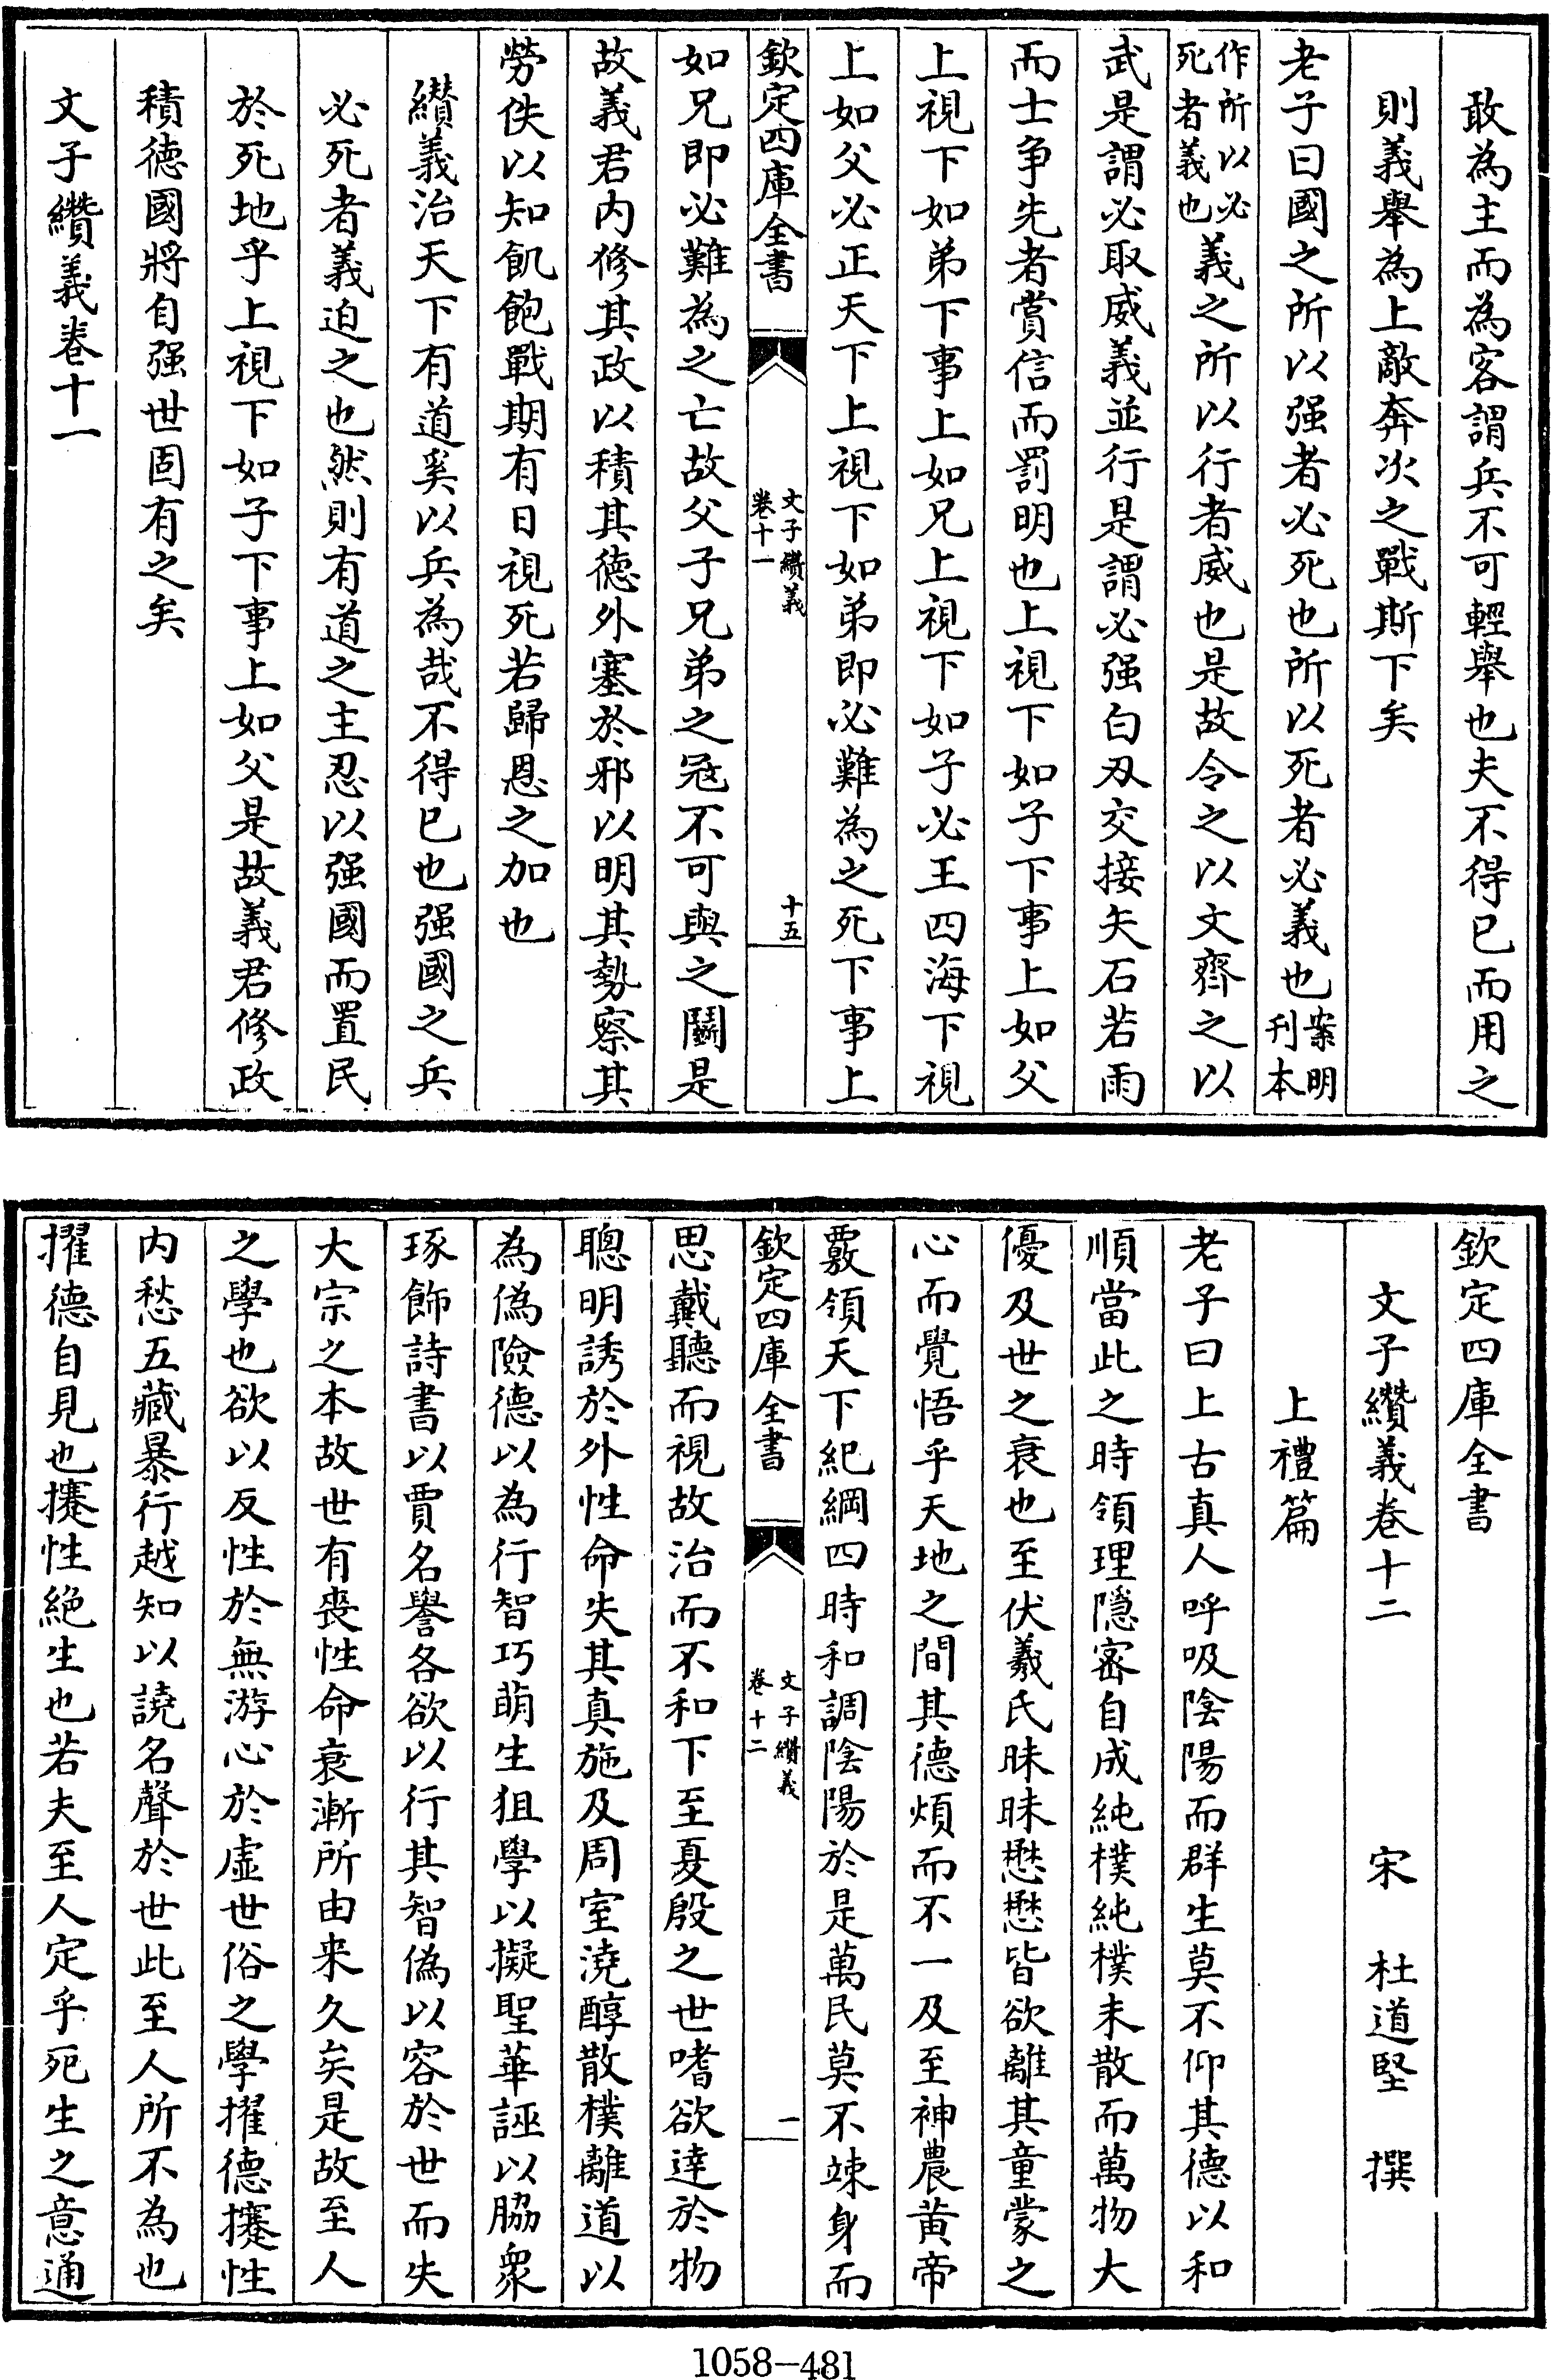 敢為主而為客謂兵不可輕舉也夫不得已而用之
則義舉為上敵奔次之戰斯下矣
老子曰國之所以强者必死也所以死者必義也案明刊本
作所以必死者義也義之所以行者威也是故令之以文齊之以
武是謂必取威義並行是謂必强白刃交接矢石若雨
而士争先者賞信而罰明也上視下如子下事上如父
上視下如弟下事上如兄上視下如子必王四海下視
上如父必正天下上視下如弟即必難為之死下事上
欽定四庫全書
文子纘義
卷十一
十五
如兄即必難為之亡故父子兄弟之冦不可與之鬬是
故義君内修其政以積其德外塞於邪以明其勢察其
勞佚以知飢飽戰期有日視死若歸恩之加也
纘義治天下有道奚以兵為哉不得已也强國之兵
必死者義迫之也然則有道之主忍以强國而置民
於死地乎上視下如子下事上如父是故義君修政
積德國將自强世固有之矣
文子纘義卷十一
欽定四庫全書
文子纘義卷十二
宋 杜道堅 撰
上禮篇
老子曰上古真人呼吸陰陽而群生莫不仰其德以和
順當此之時領理隱密自成純樸純樸未散而萬物大
優及世之衰也至伏羲氏昧昧懋懋皆欲離其童蒙之
心而覺悟乎天地之間其德煩而不一及至神農黄帝
覈領天下紀綱四時和調陰陽於是萬民莫不竦身而
欽定四庫全書
文子纘義
卷十二
一
思戴聽而視故治而不和下至夏殷之世嗜欲達於物
聰明誘於外性命失其真施及周室澆醇散樸離道以
為偽險德以為行智巧萌生狙學以擬聖華誣以脇衆
琢飾詩書以賈名譽各欲以行其智偽以容於世而失
大宗之本故世有喪性命衰漸所由来久矣是故至人
之學也欲以反性於無游心於虛世俗之學擢德攓性
内愁五藏暴行越知以譊名聲於世此至人所不為也
擢德自見也攓性絶生也若夫至人定乎死生之意通
1058-481